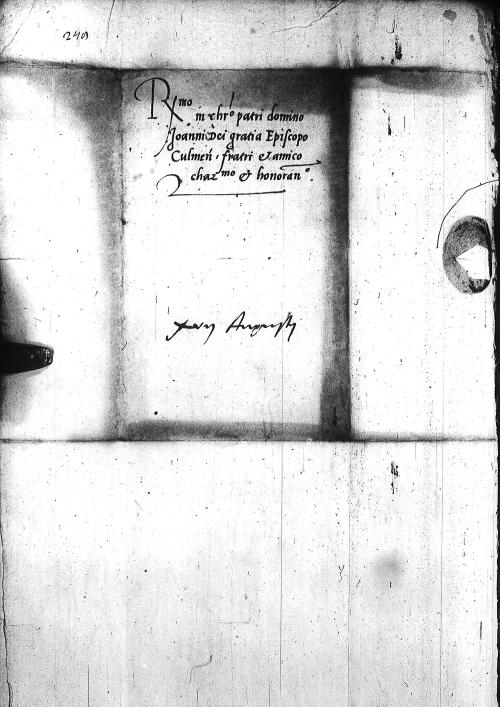 249
Rmo
in chro patri domino
Joanni Dei gratia Episcopo
Culmeñ. fratri et amico
charmo et honoran.
Augusti